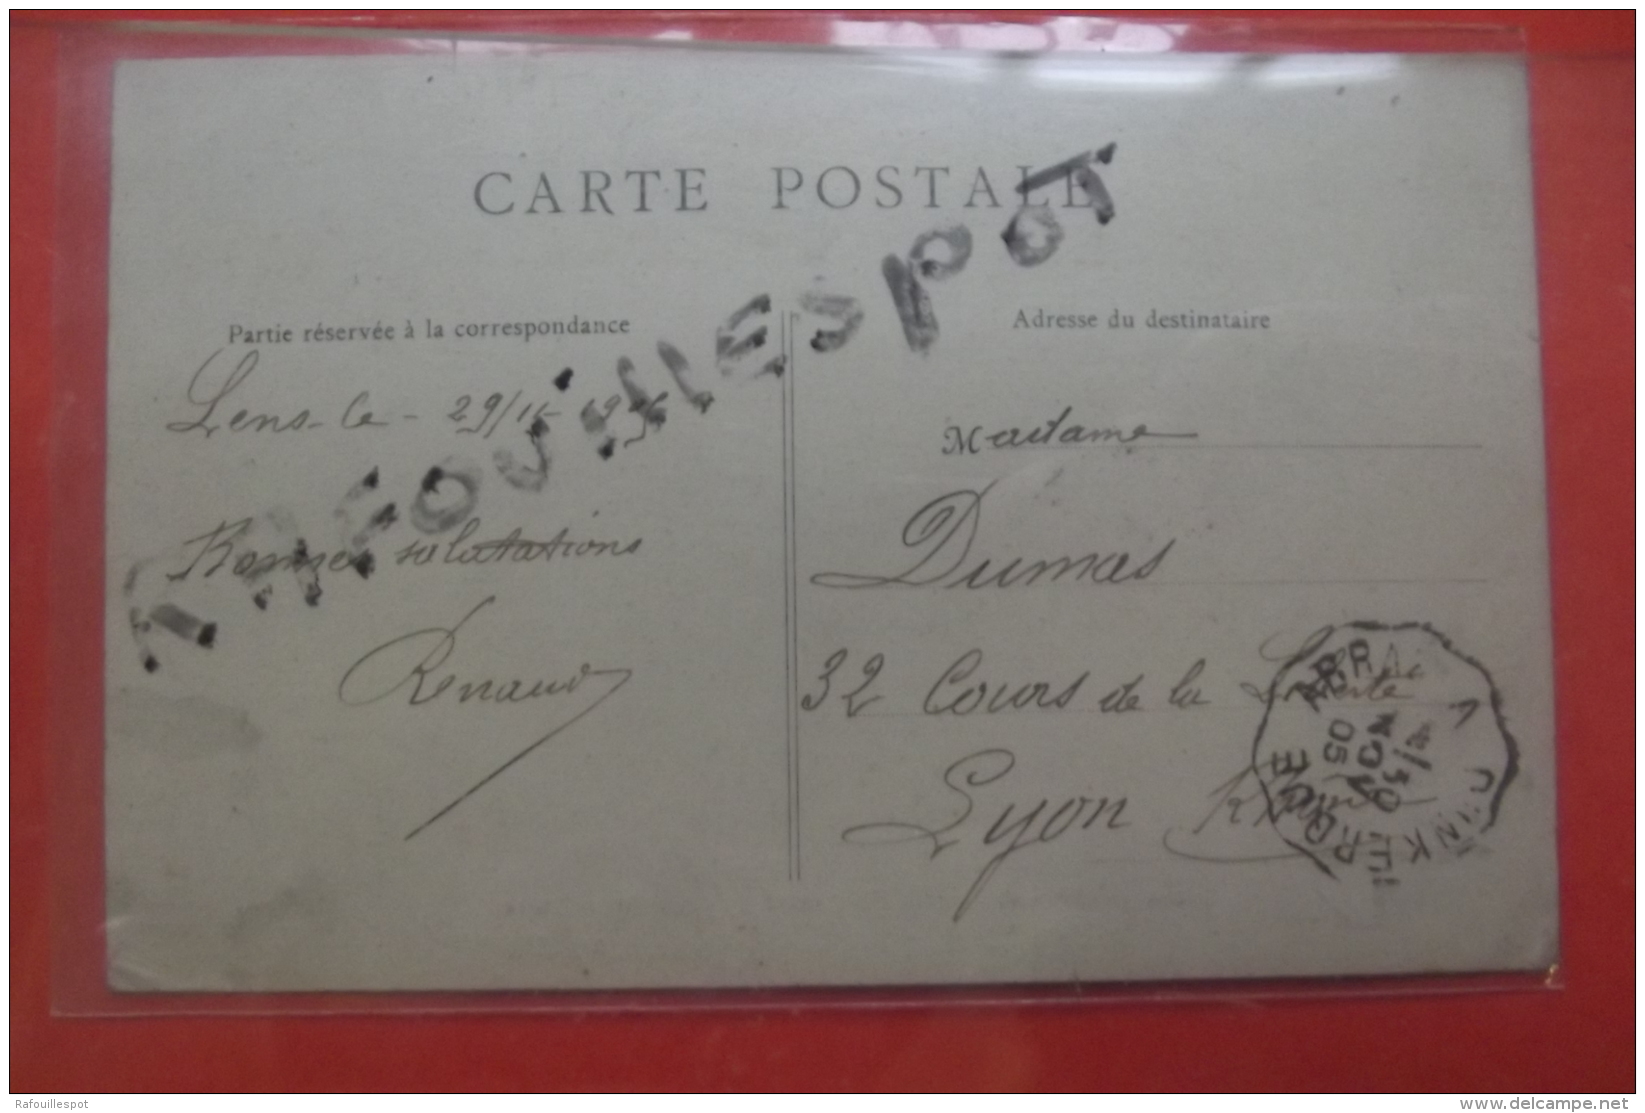 CARTE POSTALE
RAFOUILLESPOT
Partie réservée à la correspondance
Adresse du destinataire
Lens le - 29/11
Bonnes salutations
Renaud
Madame
Dumas
32 Cours de la Liberté
Lyon Rhône
ARRAS
30
NOV
05
DUNKERQUE
Rafouillespot
www.delcampe.net